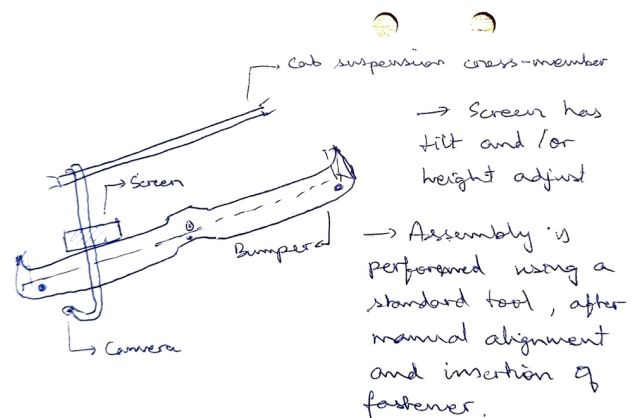 Cab suspension cross-member
Screen
Bumper
Camera
→ Screen has
tilt and /or
height adjust
→ Assembly is
performed using a
standard tool, after
manual alignment
and insertion of
fastener.